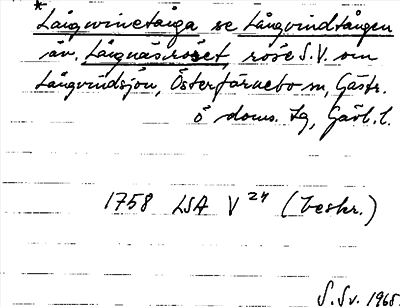 * Långvinetånga se Långvindtången
äv. Långnäsroset, röse S.V. om
Långvindsjön, Österfärnebo sn, Gästr.
ö doms. lg, Gävl. l.
1758 LSA V 24 (beskr.)
S. Sv. 1965.